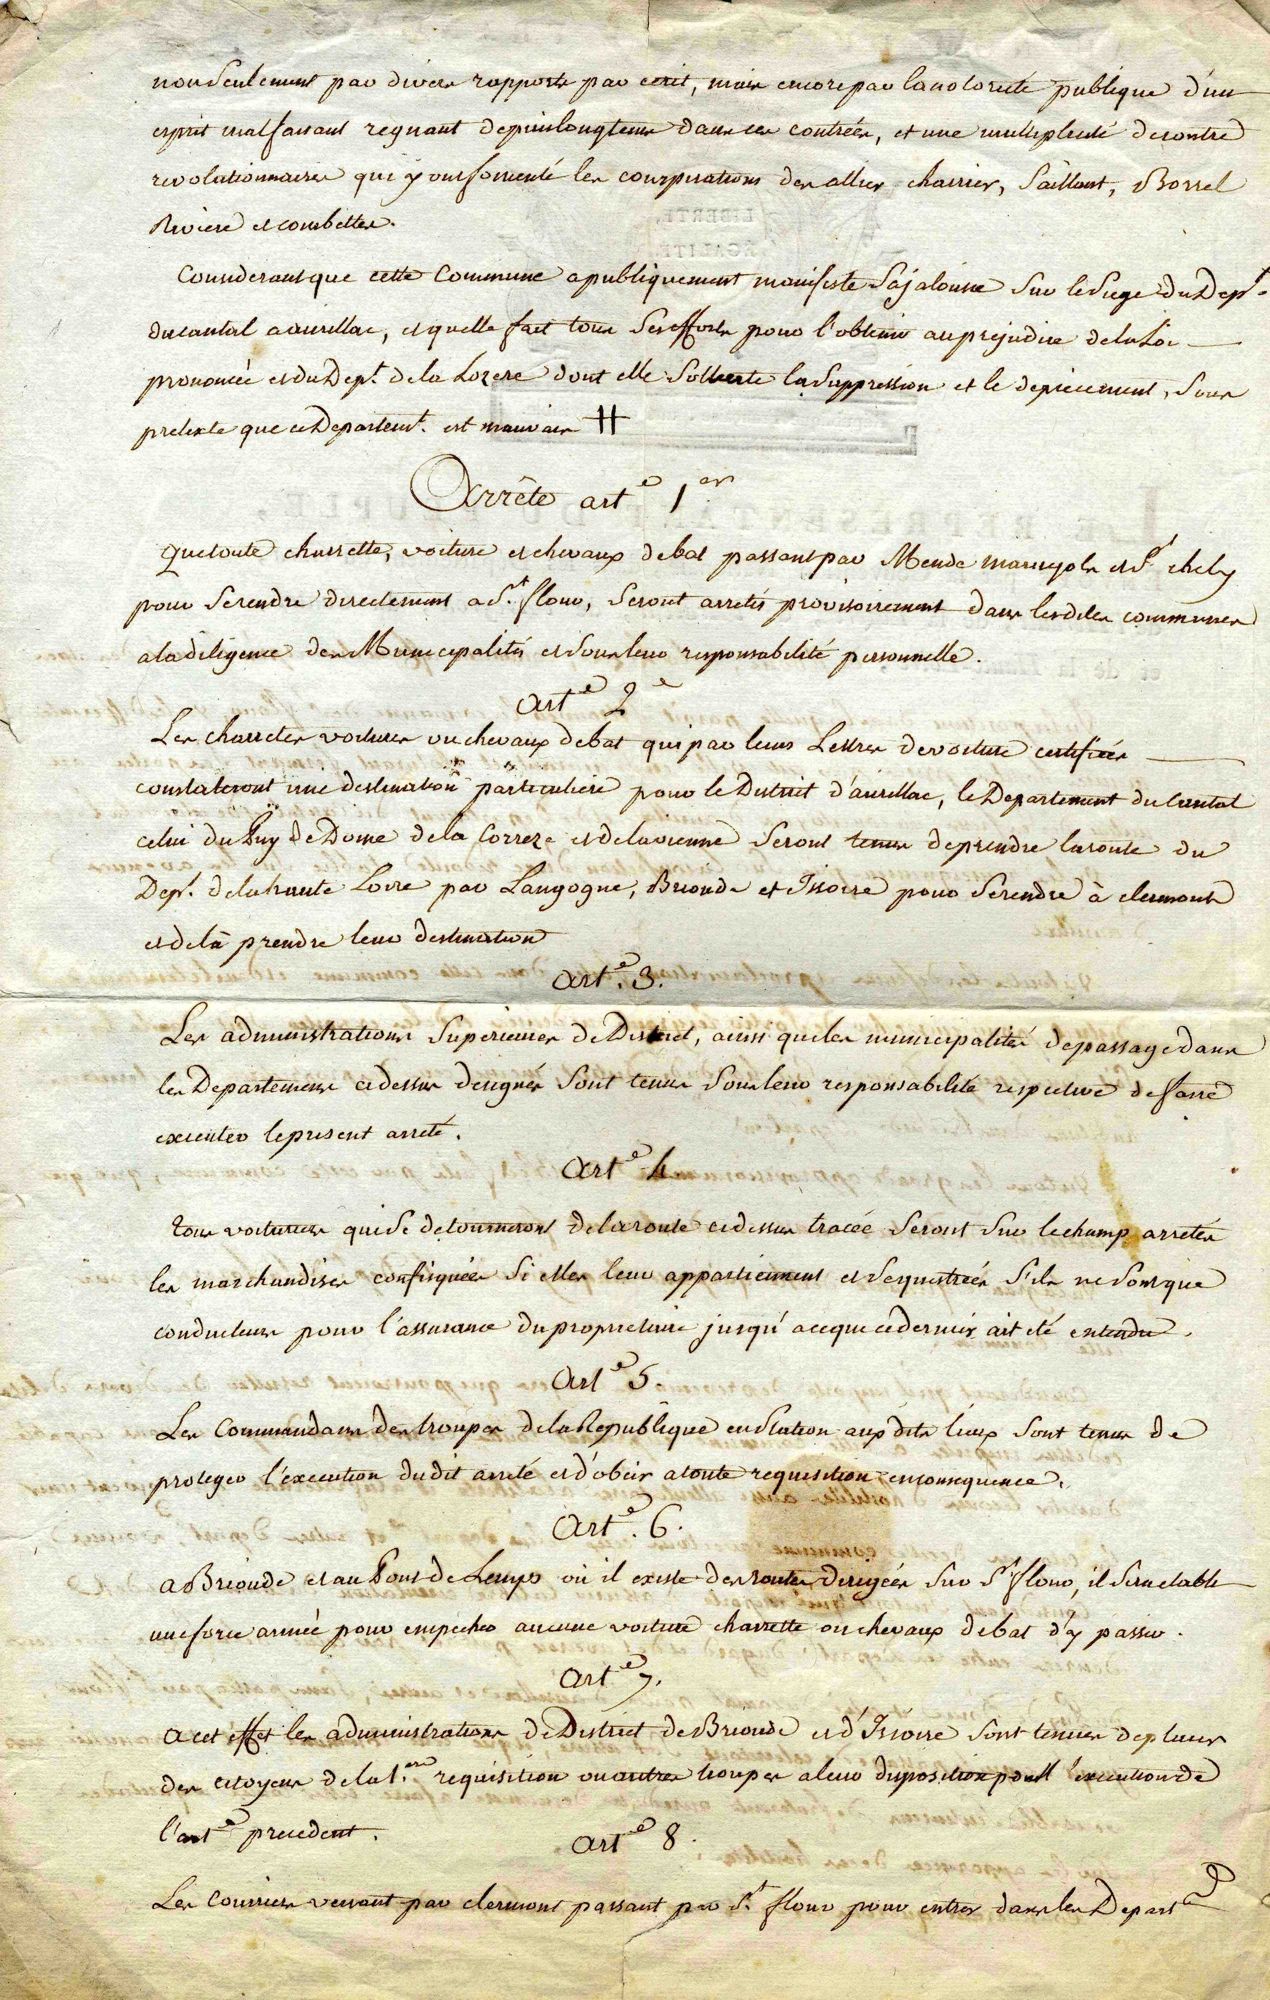 non seulement par divers rapports par ecrit, mais encore par la notorieté publique d'un
esprit malfaisant regnant depuis longtems dans ces contrées, et une multiplicité de contre
revolutionnaires qui y ont fomenté les conspirations des allier charrier, Saillant, Borrel
Riviere et combettes.
Considerant que cette Commune a publiquement manifeste Sa jalousie Sur le Siege du Dept.
du cantal a aurillac, et quelle fait tous Ses efforts pour l'obtenir au prejudice de la Loi
prononcée et du Dept. de la Lozere dont elle Sollicite la Suppression et le depiecement, Sous
pretexte que ce Departemt. est mauvais #
Arrête arte 1er
Que toute charrette, voiture et chevaux de bat passant par Mende marvejols et St chely
pour Se rendre directement a St. flour, Seront arretés provisoirement dans les dites communes
a la diligence des Municipalités et Sous leur responsabilité personnelle.
arte 2e
Les charretes voitures ou chevaux de bat qui par leurs Lettres de voiture certifiées
constateront une destination particuliere pour le District d'aurillac, le Departement du Cantal
celui du Puy de Dome de la Correze et de la vienne Seront tenus de prendre la route du
Dept. de la haute Loire par Langogne, Brioude et Issoire pour Se rendre à clermont
et de là prendre leur destination
arte. 3.
Les administrations Superieures de District, ainsi que les municipalités de passage dans
les Departemens ci dessus designés Sont tenus Sous leur responsabilité respective de faire
executer le present arreté.
arte 4
tous voituriers qui Se detourneront de la route ci dessus tracée Seront Sur le champ arretés
les marchandises confisquées Si elles leur appartiennent et Sequestrées S'ils ne Sont que
conducteurs pour l'assurance du proprietaire jusqu'a ce que ce dernier ait eté entendu.
Arte 5.
Les Commandans des troupes de la Republique en Station aux dits lieux Sont tenus de
proteger l'execution du dit arreté et d'obeir a toute requisition en consequence.
arte. 6.
a Brioude et au Pont de Lempo où il existe des routes dirigées Sur St flour, il Sera etabli
une force armée pour empecher aucune voiture charrette ou chevaux de bat d'y passer.
arte 7.
a cet effet les administrations de District de Brioude et d'Issoire Sont tenues de placer
des citoyens de la 1.ere requisition ou autres troupes a leur disposition pour l'execution de
l'arte precedent.
arte 8.
Les Courriers venant par clermont passant par St. flour pour entrer dans les Depart